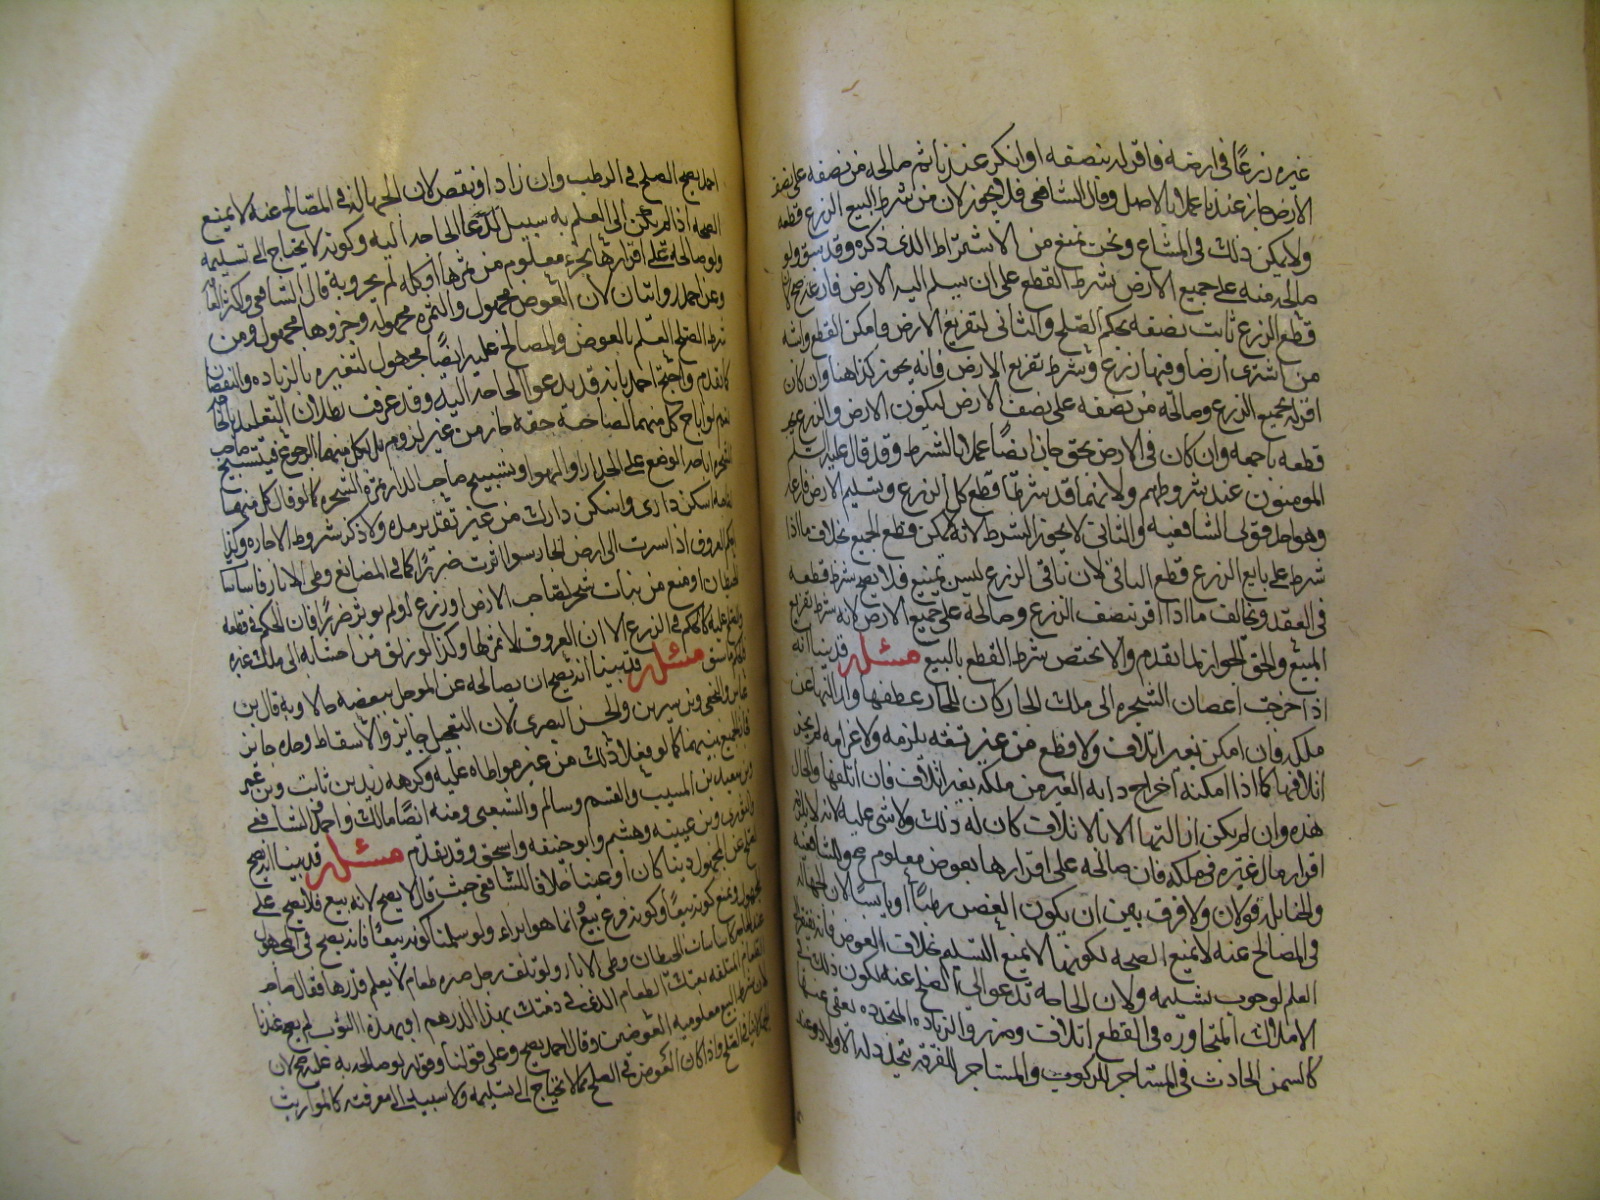 غيره زرعًا في ارضه فاقر له بنصفه او انكر عندنا ثم صالحه من نصفه على نصف
الارض جاز عندنا عملا بالاصل وقال الشافعي فلا يجوز لان من شرط البيع الزرع قطعه
ولا يمكن ذلك في المشاع ونحن نمنع من الاشتراط الذي ذكره وقد سبق ولو
صالحه منه على جميع الارض بشرط القطع على ان يسلم اليه الارض فارغه صح لان
قطع الزرع ثابت نصفه بحكم الصلح والثاني لتفريغ الارض وامكن القطع واشبه
من اشترى ارضا وفيها زرع وشرط تفريغ الارض فانه يجوز كذا هنا وان كان
اقر له بجميع الزرع وصالحه من نصفه على نصف الارض ليكون الارض والزرع
قطعه باجمعه وان كان في الارض بحق جاز ايضًا عملا بالشرط وقد قال عليه السلم
المومنون عند شروطهم ولانهما قد شرطا قطع كل الزرع وتسليم الارض فارغه
وهو احد قولي الشافعيه والثاني لا يجوز الشرط لانه يمكن قطع الجميع بخلاف ما اذا
شرط على بايع الزرع قطع الباقي لان باقي الزرع ليس بمبيع فلا يصح شرط قطعه
في العقد ويخالف ما اذا اقر بنصف الزرع وصالحه على جميع الارض لانه شرط تفريغ
المبيع والحق الجواز لما تقدم ولا يختص شرط القطع بالبيع مسئله قد بينا انه
اذا خرجت اغصان الشجره الى ملك الجار كان للجار عطفها وازالتها عن
ملكه فان امكن بغير اتلاف ولا قطع من غير سفه يلزمه ولا غرامه لم يجز
اتلافها كما اذا امكنه اخراج دابه الغير من ملكه بغير اتلاف فان اتلفها والحال
هذه وان لم يكن ازالتها الا بالاتلاف كان له ذلك ولا شي عليه لانه لا يلزمه
اقرار مال غيره في ملكه فان صالحه على اقرارها بعوض معلوم صح وللشافعيه
والحنابله قولان ولا فرق بين ان يكون الغصن رطبًا او يابسًا لان الجهاله
في المصالح عنه لا تمنع الصحه لكونها لا تمنع التسليم بخلاف العوض فانه يفتقر الى
العلم لوجوب تسليمه ولان الحاجه تدعو الى الصلح عنه لكون ذلك في
الاملاك المتجاوره وفي القطع اتلاف وضرر والزياده المتجدده يعفى عنها
كالسمن الحادث في المستاجر للركوب والمستاجر للغرفه يتجدد له الاولاد وعند
احمد يصح الصلح في الرطب وان زاد او نقص لان الجهاله في المصالح عنه لا يمنع
الصحه اذا لم يكن الى العلم به سبيل لدعا الحاجه اليه وكونه لا يحتاج الى تسليمه
ولو صالحه على اقرارها بجزء معلوم من ثمرها او كله لم يجز وبه قال الشافعي واكثر العلما
وعن احمد روايتان لان العوض مجهول والثمره مجهوله وجزوها مجهول ومن
شرط الصلح العلم بالعوض والمصالح عليه ايضًا مجهول لتغيره بالزياده والنقصان
كما تقدم واحتج احمد بانه قد يدعو الحاجه اليه وقد عرفت بطلان التعليل بالحاجه
نعم لو اباح كل منهما لصاحبه حقه جاز من غير لزوم بل لكل منهما الرجوع فيستبيح صاحب
الشجره اباحه الوضع على الجدار او الهوا ويستبيح صاحب الدار ثمره الشجره كما لو قال كل منهما
لصاحبه اسكن داري واسكن دارك من غير تقدير مده ولا ذكر شروط الاجاره وكذا
حكم العروق اذا سرت الى ارض الجار سوا اثرت ضررًا كما في المصانع وطي الابار واساسات
الحيطان او منع من نبات شجر لصاحب الارض او زرع او لم يوثر ضررًا فان الحكم في قطعه
والصلح عليه كالحكم في الزرع الا ان العروق لا ثمر لها وكذا لو زلق من اخشابه الى ملك غيره
فالحكم ما سبق مسئله قد بينا انه يصح ان يصالحه عن الموجل ببعضه حالا وبه قال بن
عباس والنخعي وبن سيرين والحسن البصري لان التعجيل جائز والاسقاط وحده جائز
فجاز الجمع بينهما كما لو فعلا ذلك من غير مواطاه عليه وكرهه زيد بن ثابت وبن عمر
وسعيد بن المسيب والقسم وسالم والشعبي ومنه ايضًا مالك واحمد الشافعي
والثوري وبن عيينه وهشيم وابو حنيفه واسحق وقد تقدم مسئله قد بينا انه يصح
الصلح عن المجهول دينا كان او عينا خلافا للشافعي حيث قال لا يصح لانه بيع فلا يصح على
المجهول ونمنع كونه بيعًا وكونه فرع بيع انما هو ابراء ولو سلمنا كونه بيعًا فانه يصح في المجهول
عند الحاجه كاساسات الحيطان وطي الابار ولو تلف رجل صبره طعام لا يعلم قدرها فقال صاحب
الطعام لمتلفه بعتك الطعام الذي في ذمتك بهذا الدرهم او بهذا الثوب لم يصح عندنا
لان شرط البيع معلوميه العوضين وقال احمد يصح وعلى قولنا وقوله لو صالحه به عليه صح لان
الصلح واذا كان العوض في الصلح مما لا يحتاج الى تسليمه ولا سبيل الى معرفته كالمواريث